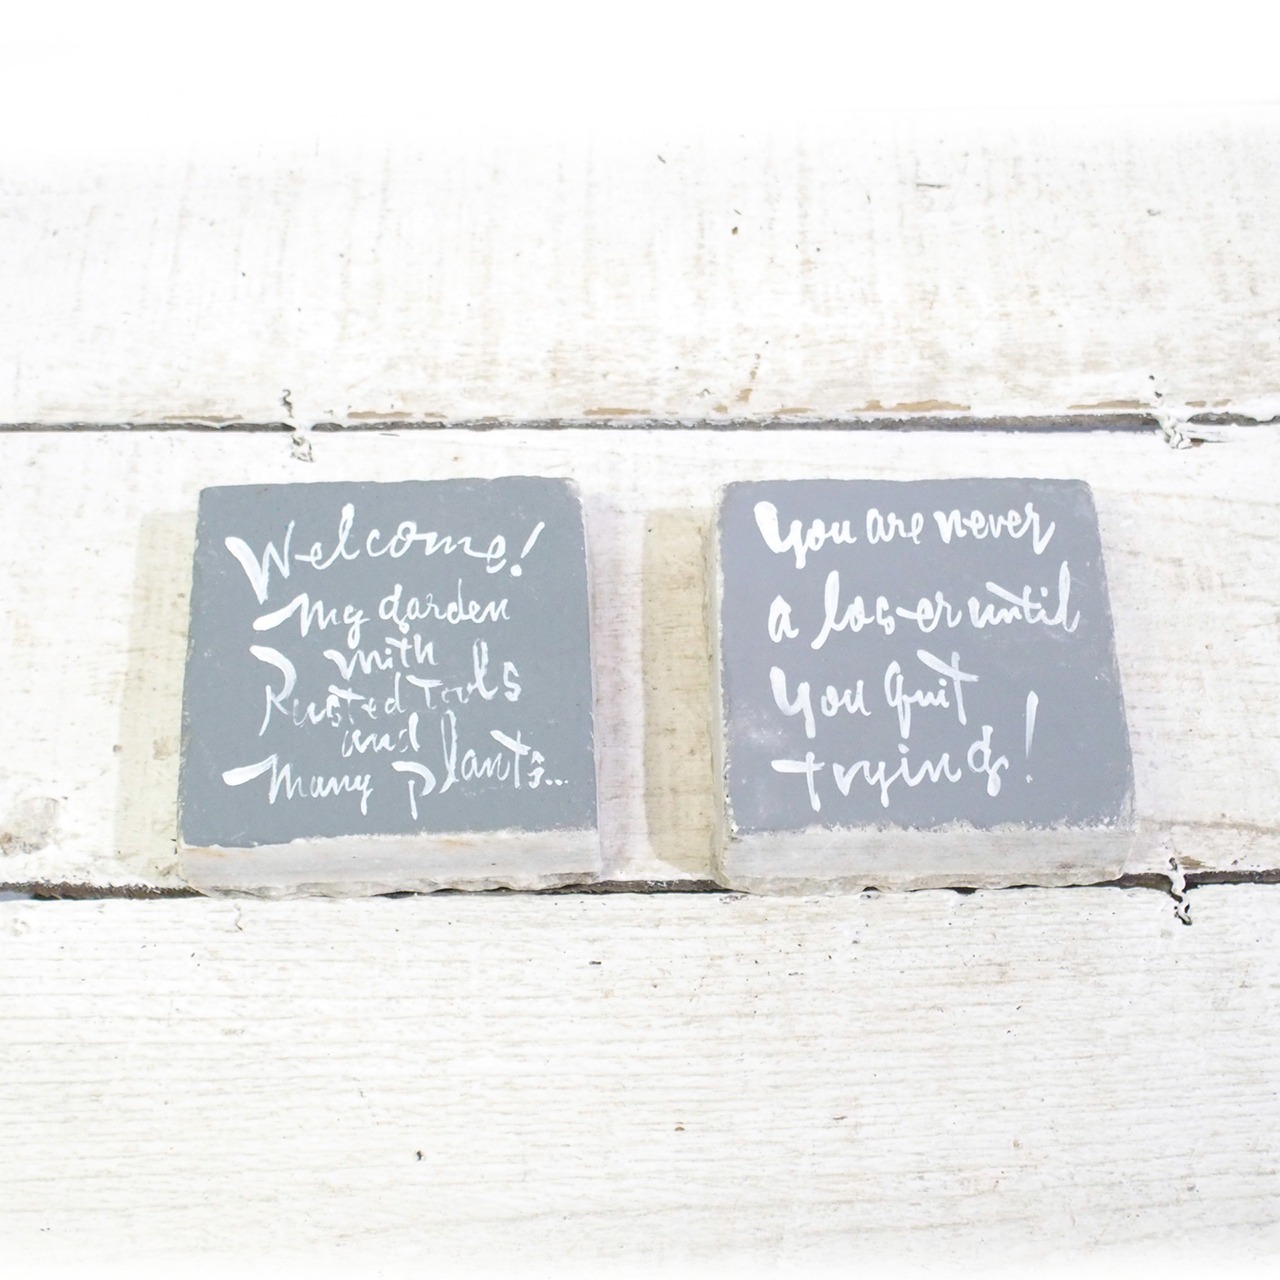 Welcome!
My garden
with
Rusted Tools
and
Many plants...
You are never
a loser until
You Quit
trying!